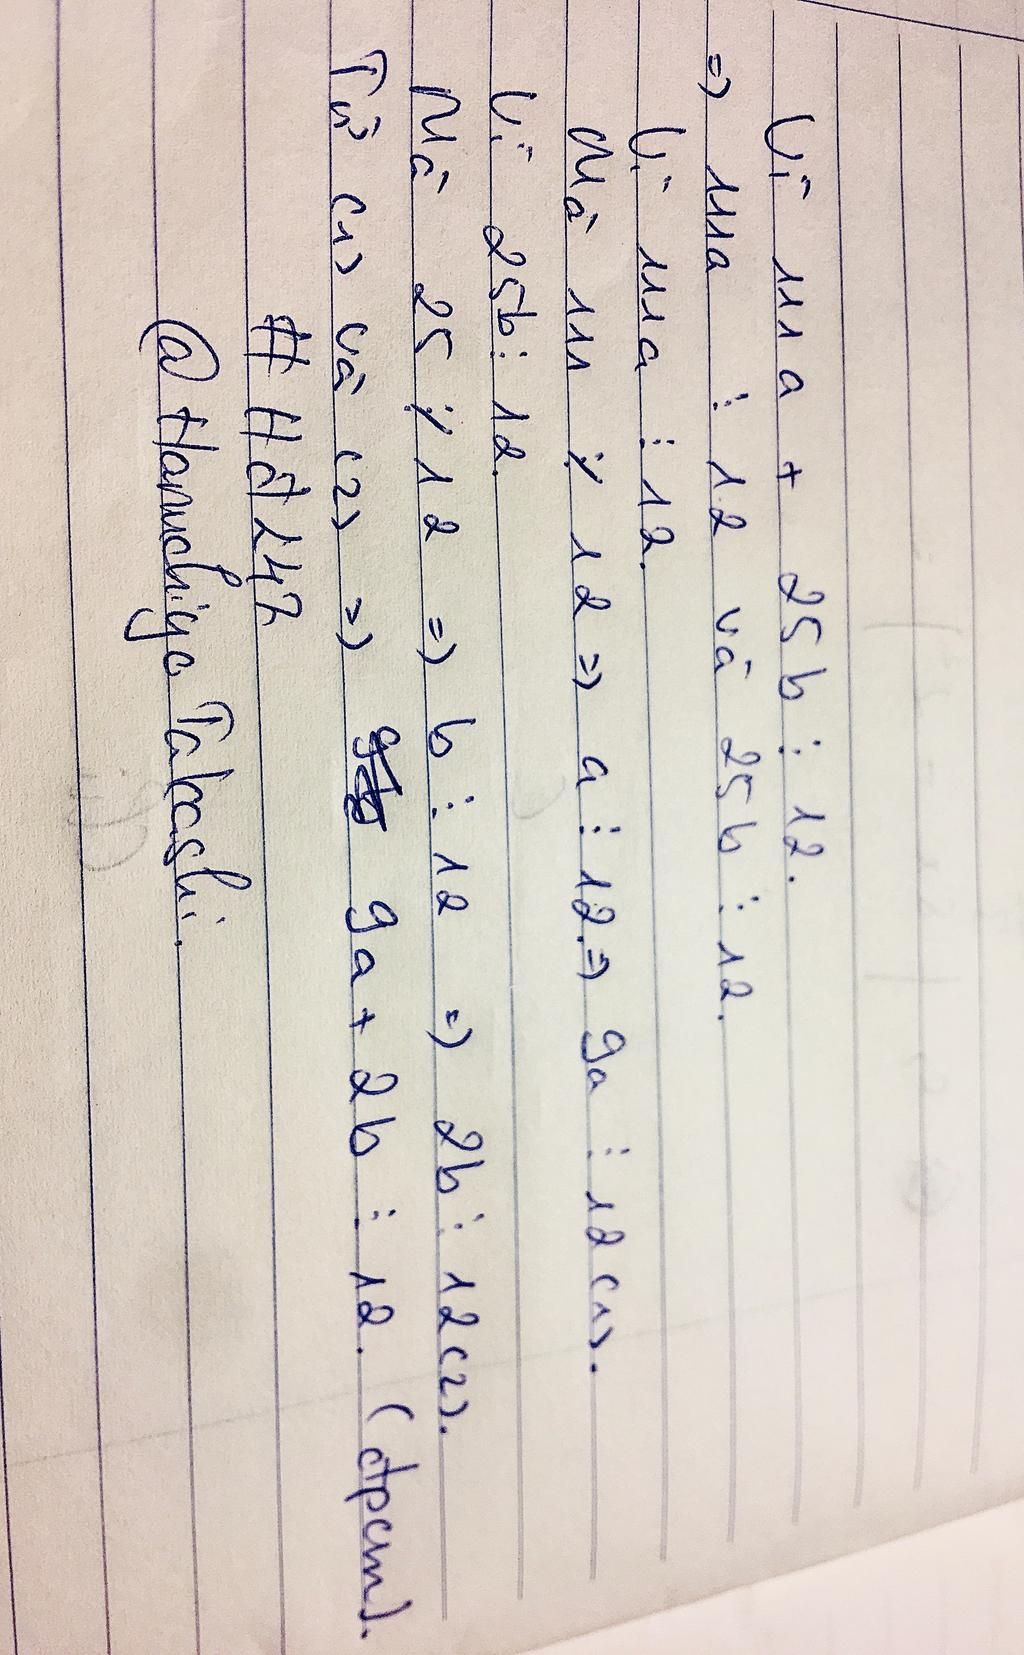 Vì 111a + 25b ⋮ 12.
=> 111a ⋮ 12 và 25b ⋮ 12.
Vì 111a ⋮ 12.
Mà 111 ⋮̸ 12 => a ⋮ 12. => 9a ⋮ 12 (1).
Vì 25b ⋮ 12.
Mà 25 ⋮̸ 12 => b ⋮ 12 => 2b ⋮ 12 (2).
Từ (1) và (2) => 9a + 2b ⋮ 12. (đpcm).
@Hanuchiya Takashi.